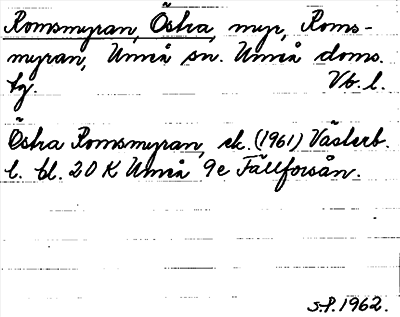 Romsmyran, Östra, myr, Roms-
myran, Umeå sn. Umeå doms.
tg. Vb. l.
Östra Romsmyran, ek. (1961) Västerb.
l. bl. 20 K Umeå 9e Fällforsån.
s.P. 1962.